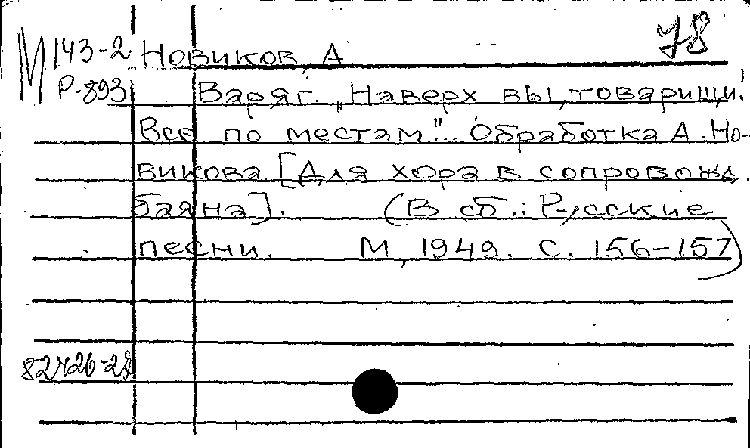 78
М 143-2 Новиков, А
Р-893 Варяг. „Наверх вы, товарищи!
Все по местам"... Обработка А. Но-
викова [Для хора в сопровожд.
баяна]. (В сб.: Русские
песни. М, 1949. С. 156-157)
82426-28